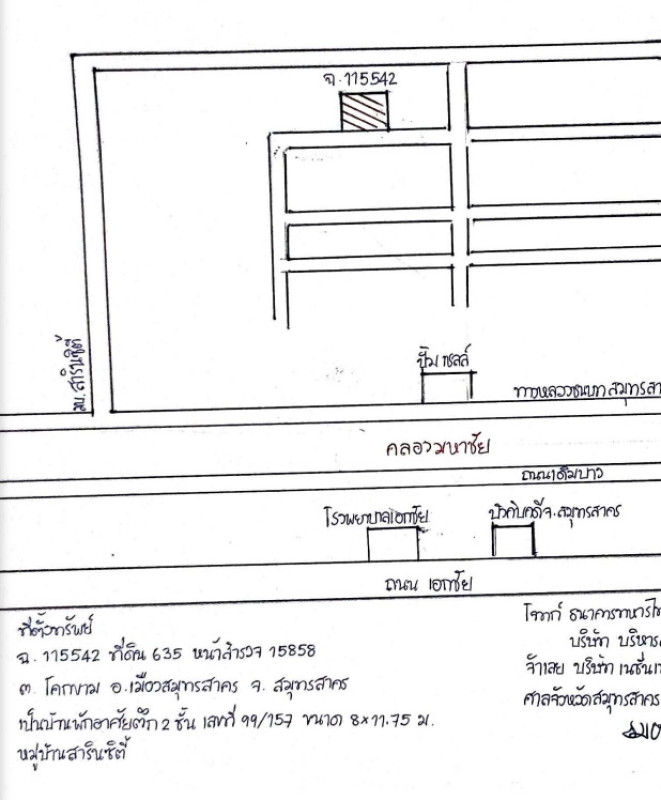 ฉ. 115542
มบ. สารินซิตี้
ปั๊ม เชลล์
ทางหลวงชนบท สมุทรสา
คลองมหาชัย
ถนนเดิมบาง
โรงพยาบาลเอกชัย
บังคับคดีจ.สมุทรสาคร
ถนน เอกชัย
ที่ตั้งทรัพย์
ฉ. 115542 ที่ดิน 635 หน้าสำรวจ 15858
ต. โคกขาม อ.เมืองสมุทรสาคร จ. สมุทรสาคร
เป็นบ้านพักอาศัยตึก 2 ชั้น เลขที่ 99/157 ขนาด 8×11.75 ม.
หมู่บ้านสารินซิตี้
โจทก์ ธนาคารทหารไท
บริษัท บริหาร
จำเลย บริษัท เนชั่นเ
ศาลจังหวัดสมุทรสาคร